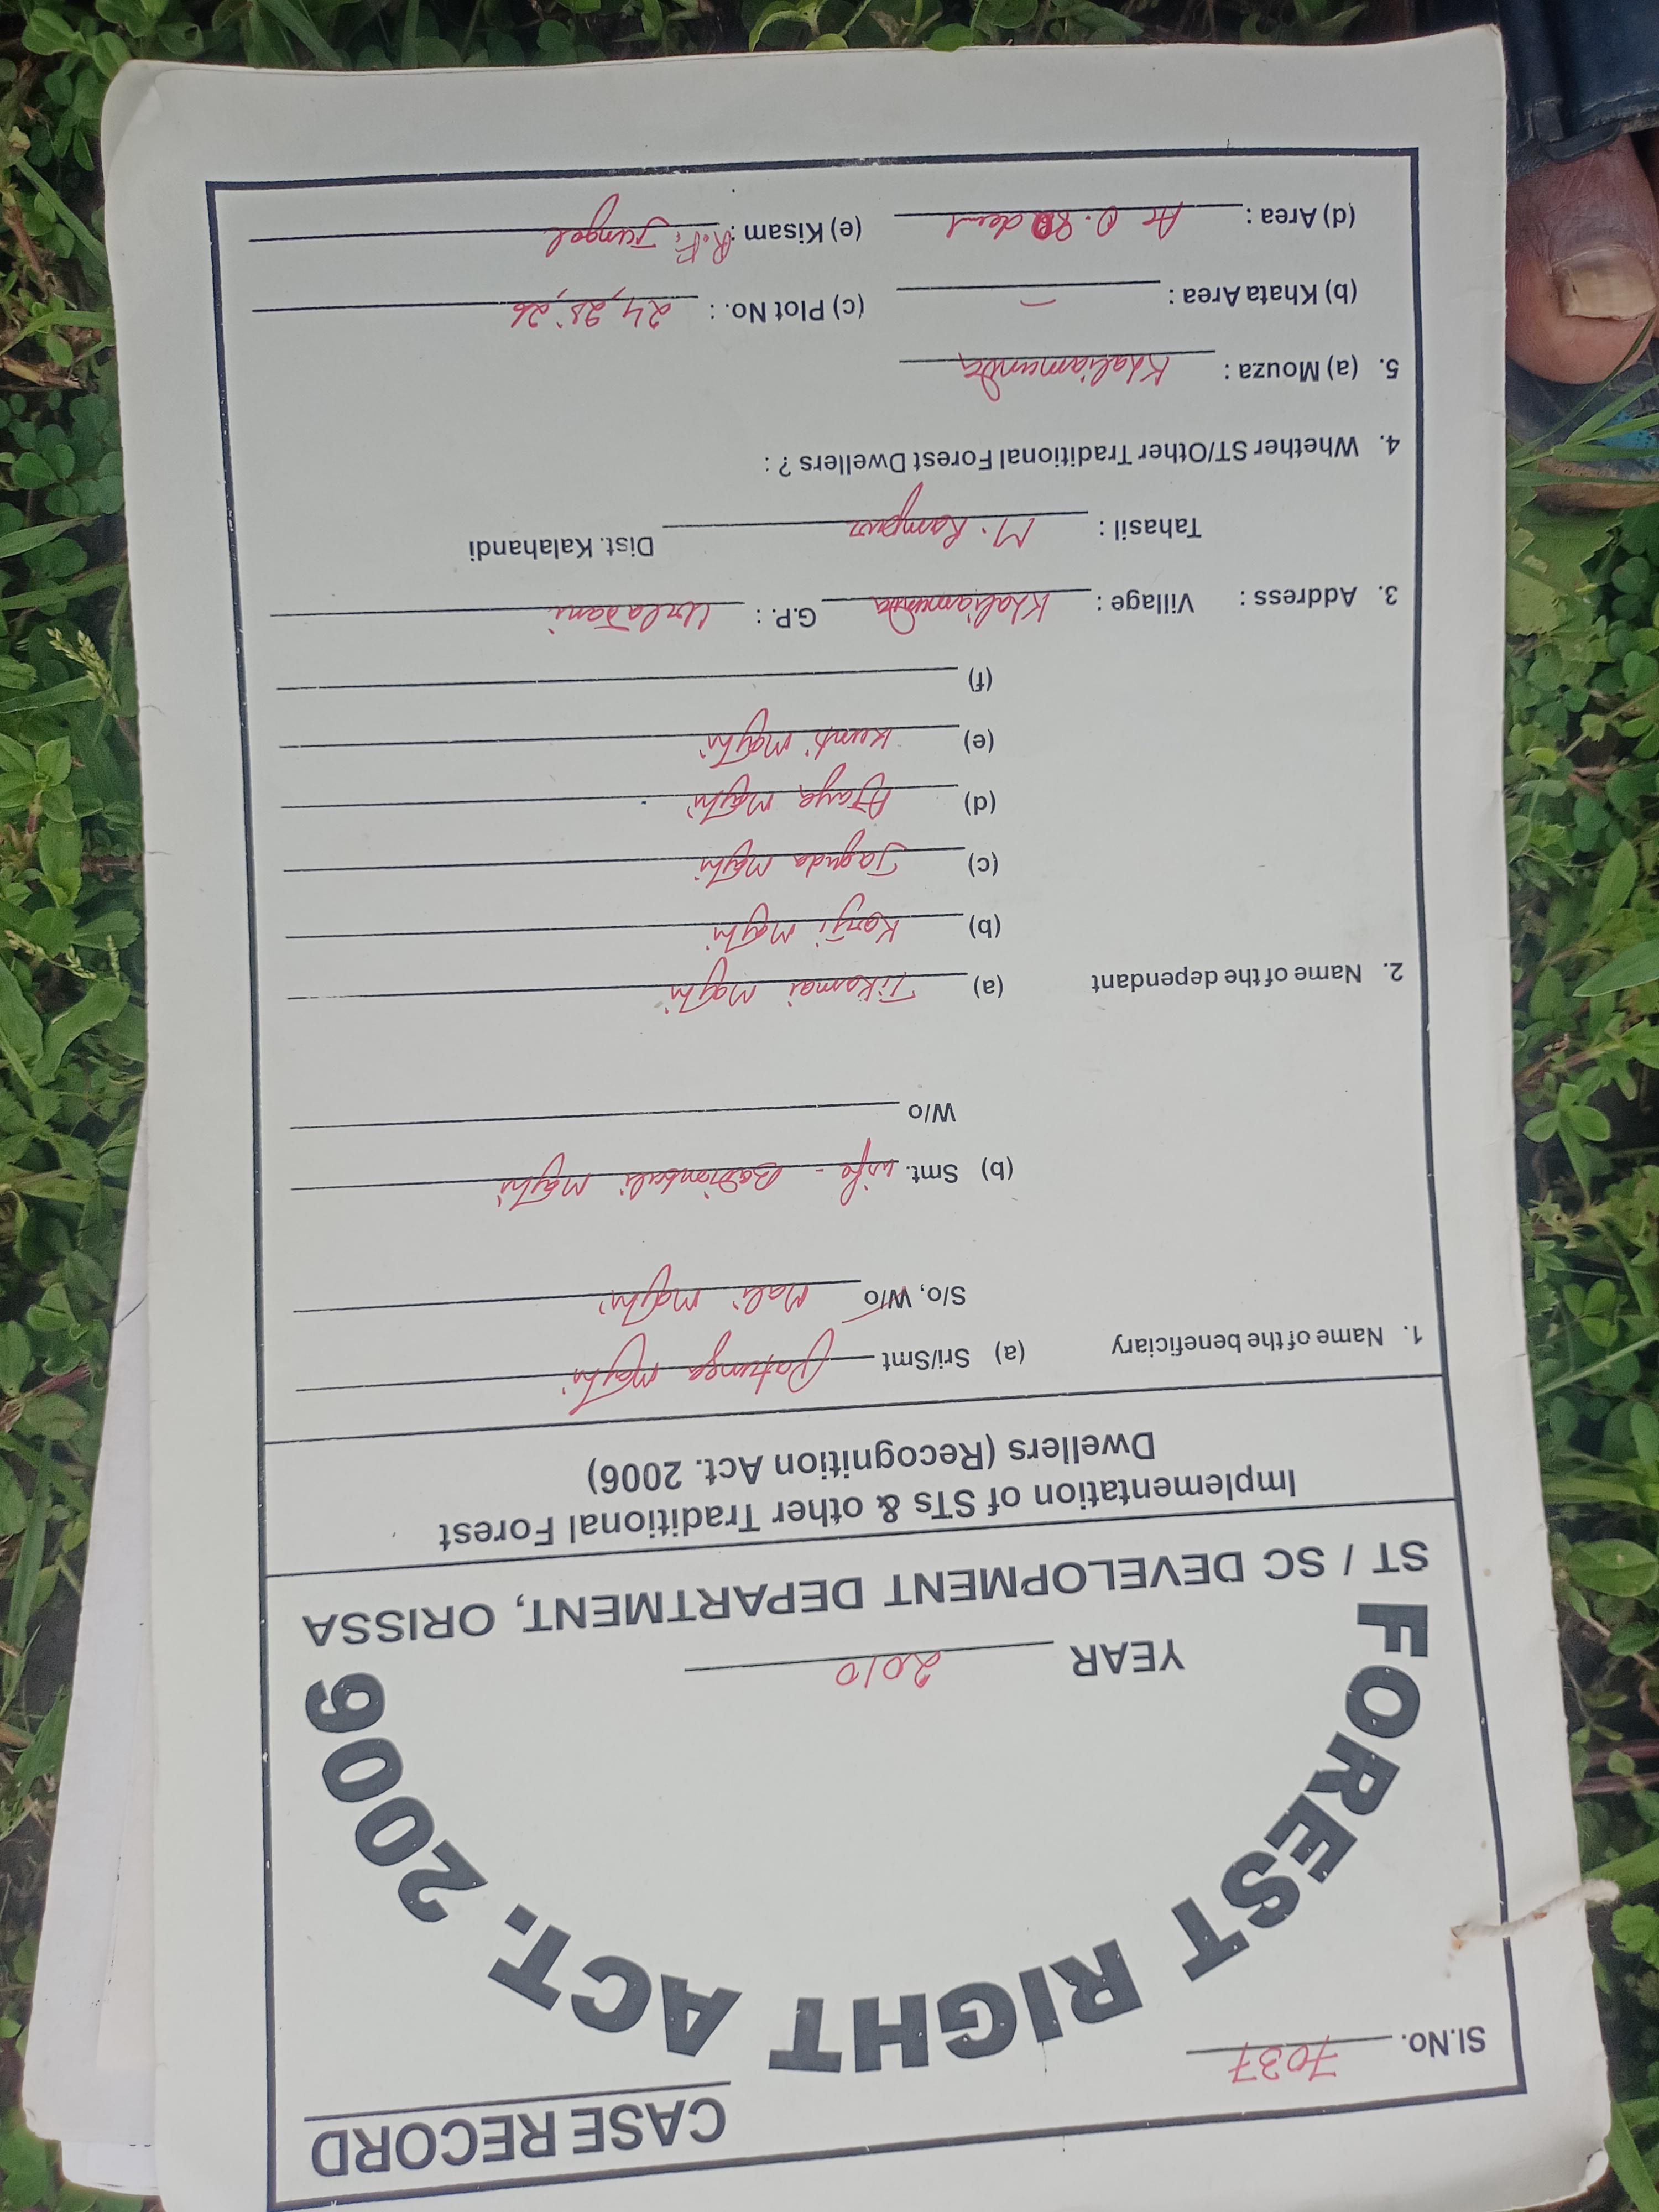 CASE RECORD
Sl.No. 7037
FOREST RIGHT ACT. 2006
YEAR 2010
ST / SC DEVELOPMENT DEPARTMENT, ORISSA
Implementation of STs & other Traditional Forest
Dwellers (Recognition Act. 2006)
1. Name of the beneficiary (a) Sri/Smt Majhi
S/o, W/o Mali Majhi
(b) Smt. wife - Majhi
W/o
2. Name of the dependant (a) Tikamai Majhi
(b) Kanji Majhi
(c) Jaguda Majhi
(d) Ajaya Majhi
(e) Kunti Majhi
(f)
3. Address : Village : Khaliamunda G.P. : Urladani
Tahasil : M. Rampur Dist. Kalahandi
4. Whether ST/Other Traditional Forest Dwellers ? :
5. (a) Mouza : Khaliamunda
(b) Khata Area : — (c) Plot No. : 24, 25, 26
(d) Area : Ac 0. (e) Kisam : R.F. Jungal